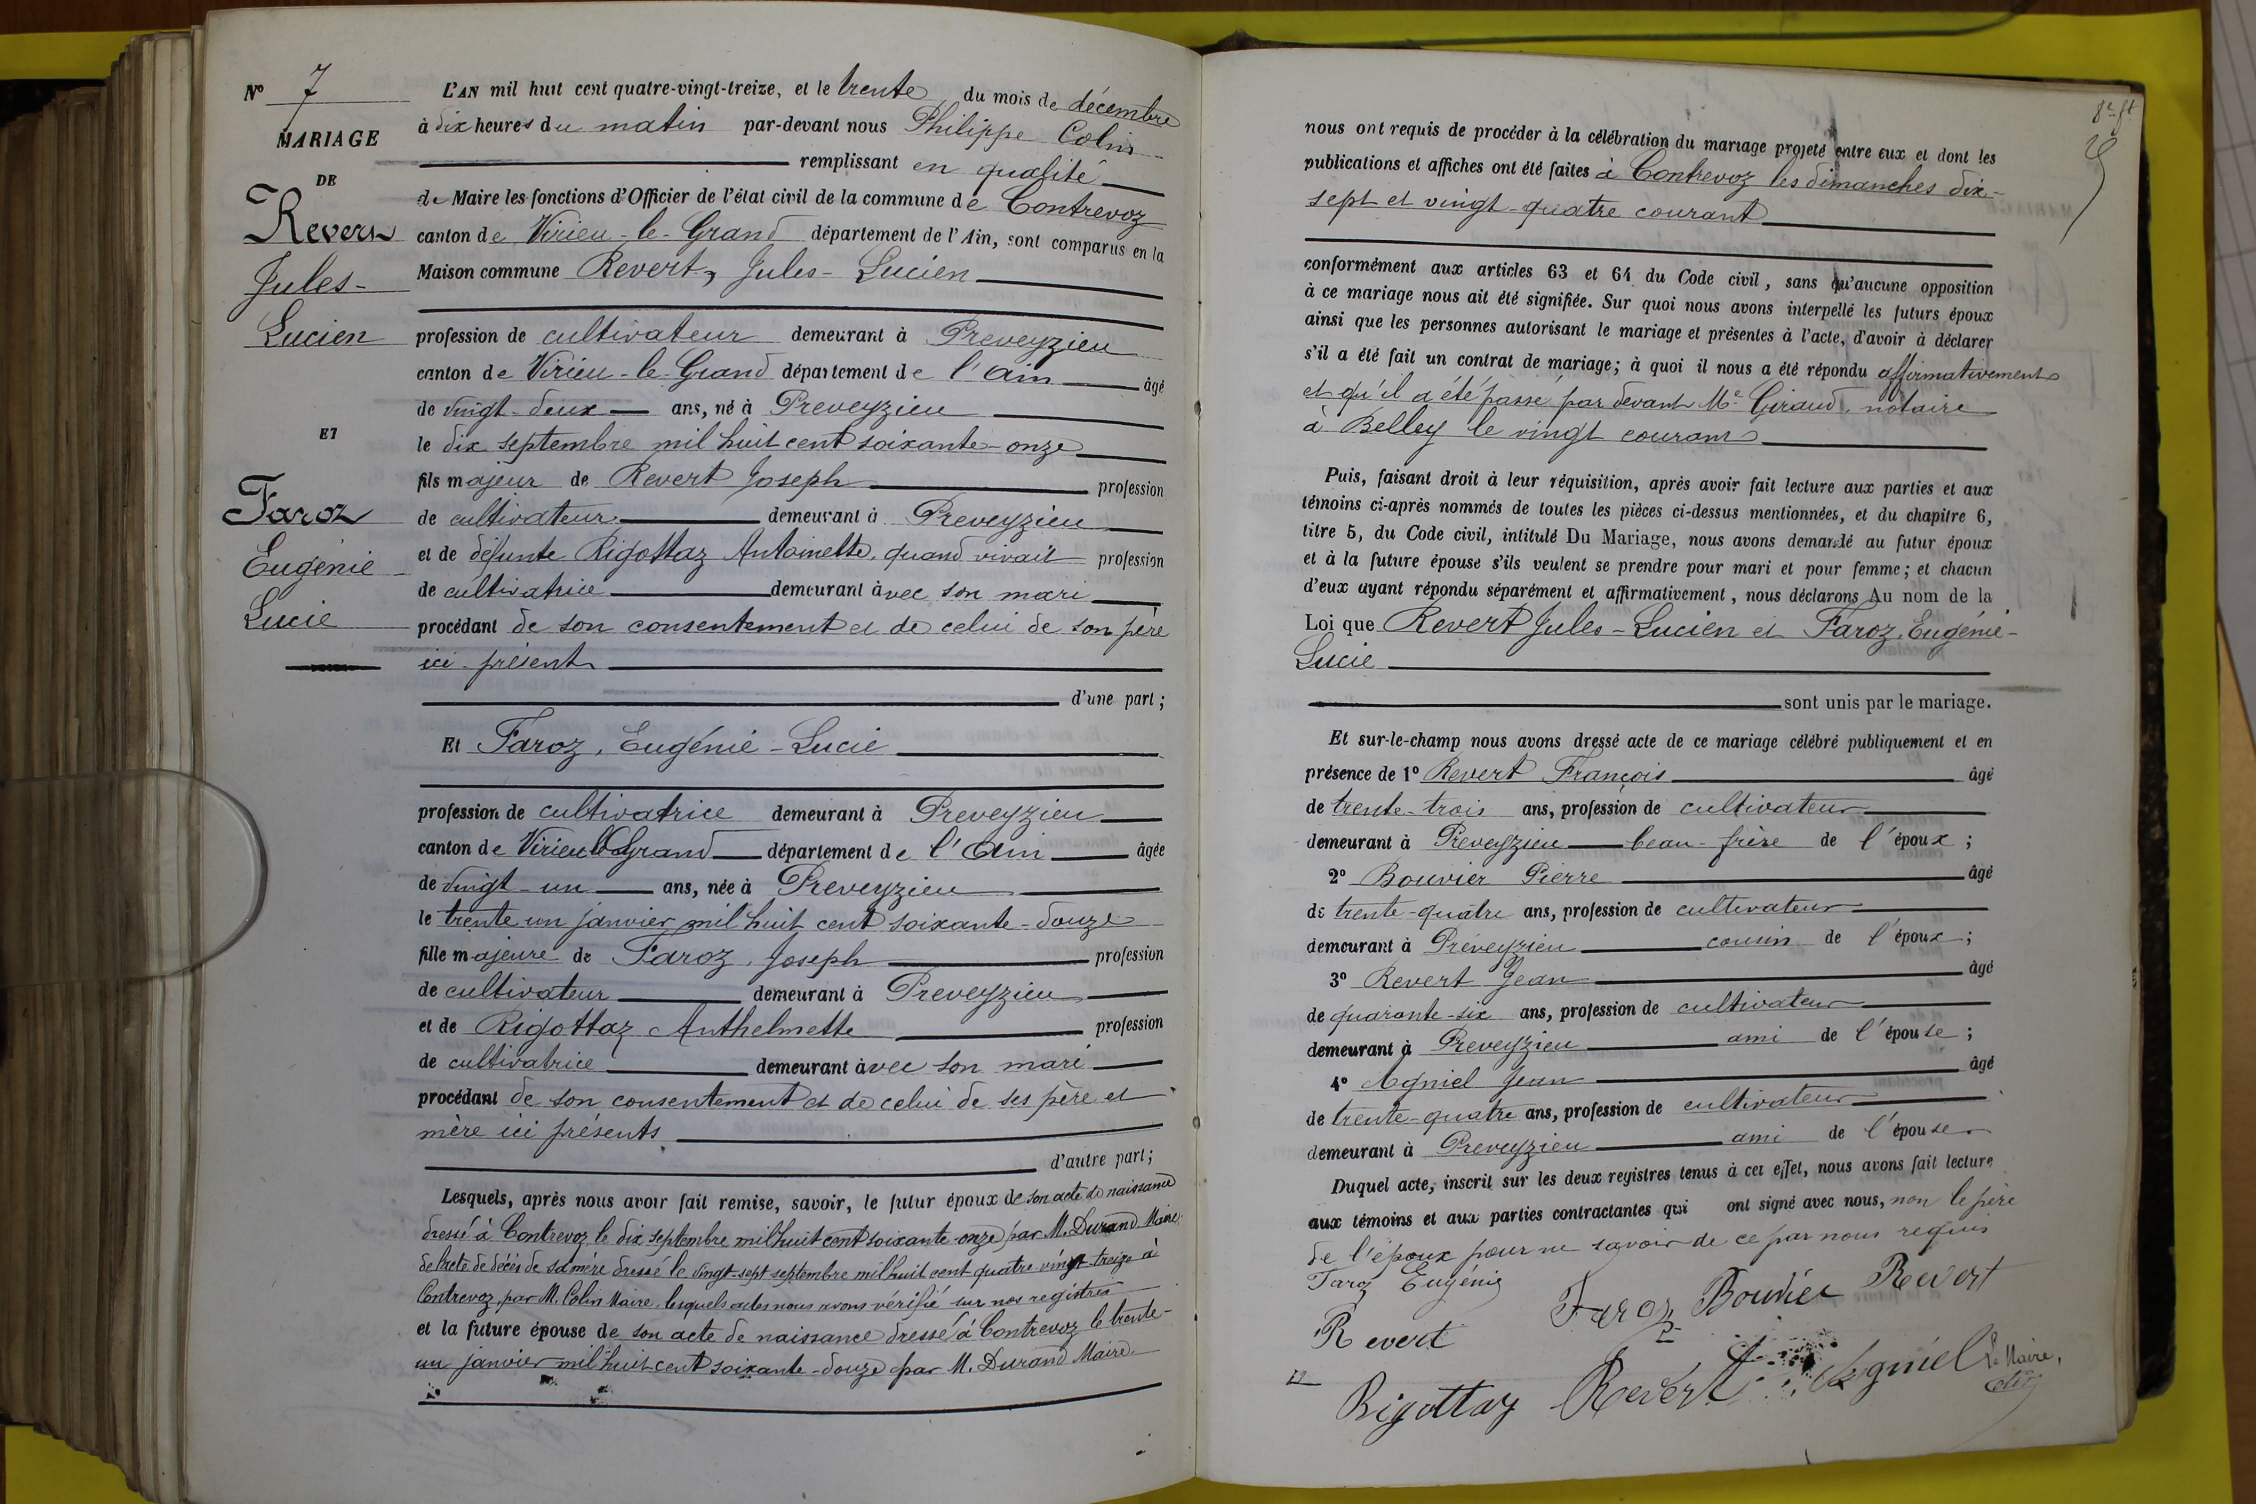 N° 7
MARIAGE
DE
Revert
Jules-
Lucien
ET
Faroz
Eugénie
Lucie
L'AN mil huit cent quatre-vingt-treize, et le trente du mois de décembre
à dix heures du matin par-devant nous Philippe Colin
remplissant en qualité
de Maire les fonctions d'Officier de l'état civil de la commune de Contrevoz
canton de Virieu-le-Grand département de l'Ain, sont comparus en la
Maison commune Revert, Jules-Lucien
profession de cultivateur demeurant à Preveyzieu
canton de Virieu-le-Grand département de l'Ain âgé
de vingt-deux ans, né à Preveyzieu
le dix septembre mil huit cent soixante-onze
fils majeur de Revert Joseph profession
de cultivateur demeurant à Preveyzieu
et de défunte Rigottaz Antoinette, quand vivait profession
de cultivatrice demeurant avec son mari
procédant de son consentement et de celui de son père
ici présent
d'une part;
Et Faroz, Eugénie-Lucie
profession de cultivatrice demeurant à Preveyzieu
canton de Virieu le Grand département de l'Ain âgée
de vingt-un ans, née à Preveyzieu
le trente un janvier mil huit cent soixante-douze
fille majeure de Faroz, Joseph profession
de cultivateur demeurant à Preveyzieu
et de Rigottaz Anthelmette profession
de cultivatrice demeurant avec son mari
procédant de son consentement et de celui de ses père et
mère ici présents
d'autre part;
Lesquels, après nous avoir fait remise, savoir, le futur époux de son acte de naissance
dressé à Contrevoz le dix septembre mil huit cent soixante-onze par M. Durand Maire;
de l'acte de décès de sa mère dressé le vingt-sept septembre mil huit cent quatre vingt-treize à
Contrevoz, par M. Colin Maire, lesquels actes nous avons vérifié sur nos registres
et la future épouse de son acte de naissance dressé à Contrevoz le trente-
un janvier mil huit cent soixante-douze par M. Durand Maire.
nous ont requis de procéder à la célébration du mariage projeté entre eux et dont les
publications et affiches ont été faites à Contrevoz les dimanches dix-
sept et vingt-quatre courant
conformément aux articles 63 et 64 du Code civil, sans qu'aucune opposition
à ce mariage nous ait été signifiée. Sur quoi nous avons interpellé les futurs époux
ainsi que les personnes autorisant le mariage et présentes à l'acte, d'avoir à déclarer
s'il a été fait un contrat de mariage; à quoi il nous a été répondu affirmativement
et qu'il a été passé par devant Me Giraud, notaire
à Belley le vingt courant
Puis, faisant droit à leur réquisition, après avoir fait lecture aux parties et aux
témoins ci-après nommés de toutes les pièces ci-dessus mentionnées, et du chapitre 6,
titre 5, du Code civil, intitulé Du Mariage, nous avons demandé au futur époux
et à la future épouse s'ils veulent se prendre pour mari et pour femme; et chacun
d'eux ayant répondu séparément et affirmativement, nous déclarons Au nom de la
Loi que Revert Jules-Lucien et Faroz, Eugénie-
Lucie
sont unis par le mariage.
Et sur-le-champ nous avons dressé acte de ce mariage célébré publiquement et en
présence de 1° Revert François âgé
de trente-trois ans, profession de cultivateur
demeurant à Preveyzieu beau-frère de l'époux;
2° Bouvier Pierre âgé
de trente-quatre ans, profession de cultivateur
demeurant à Préveyzieu cousin de l'époux;
3° Revert Jean âgé
de quarante-six ans, profession de cultivateur
demeurant à Preveyzieu ami de l'épouse;
4° Agniel Jean âgé
de trente-quatre ans, profession de cultivateur
demeurant à Preveyzieu ami de l'épouse
Duquel acte, inscrit sur les deux registres tenus à cet effet, nous avons fait lecture
aux témoins et aux parties contractantes qui ont signé avec nous, non le père
de l'époux pour ne savoir de ce par nous requis
Faroz Eugénie
Faroz Bouvier Revert
Revert
Rigottaz Revert Agniel Le Maire,
Colin